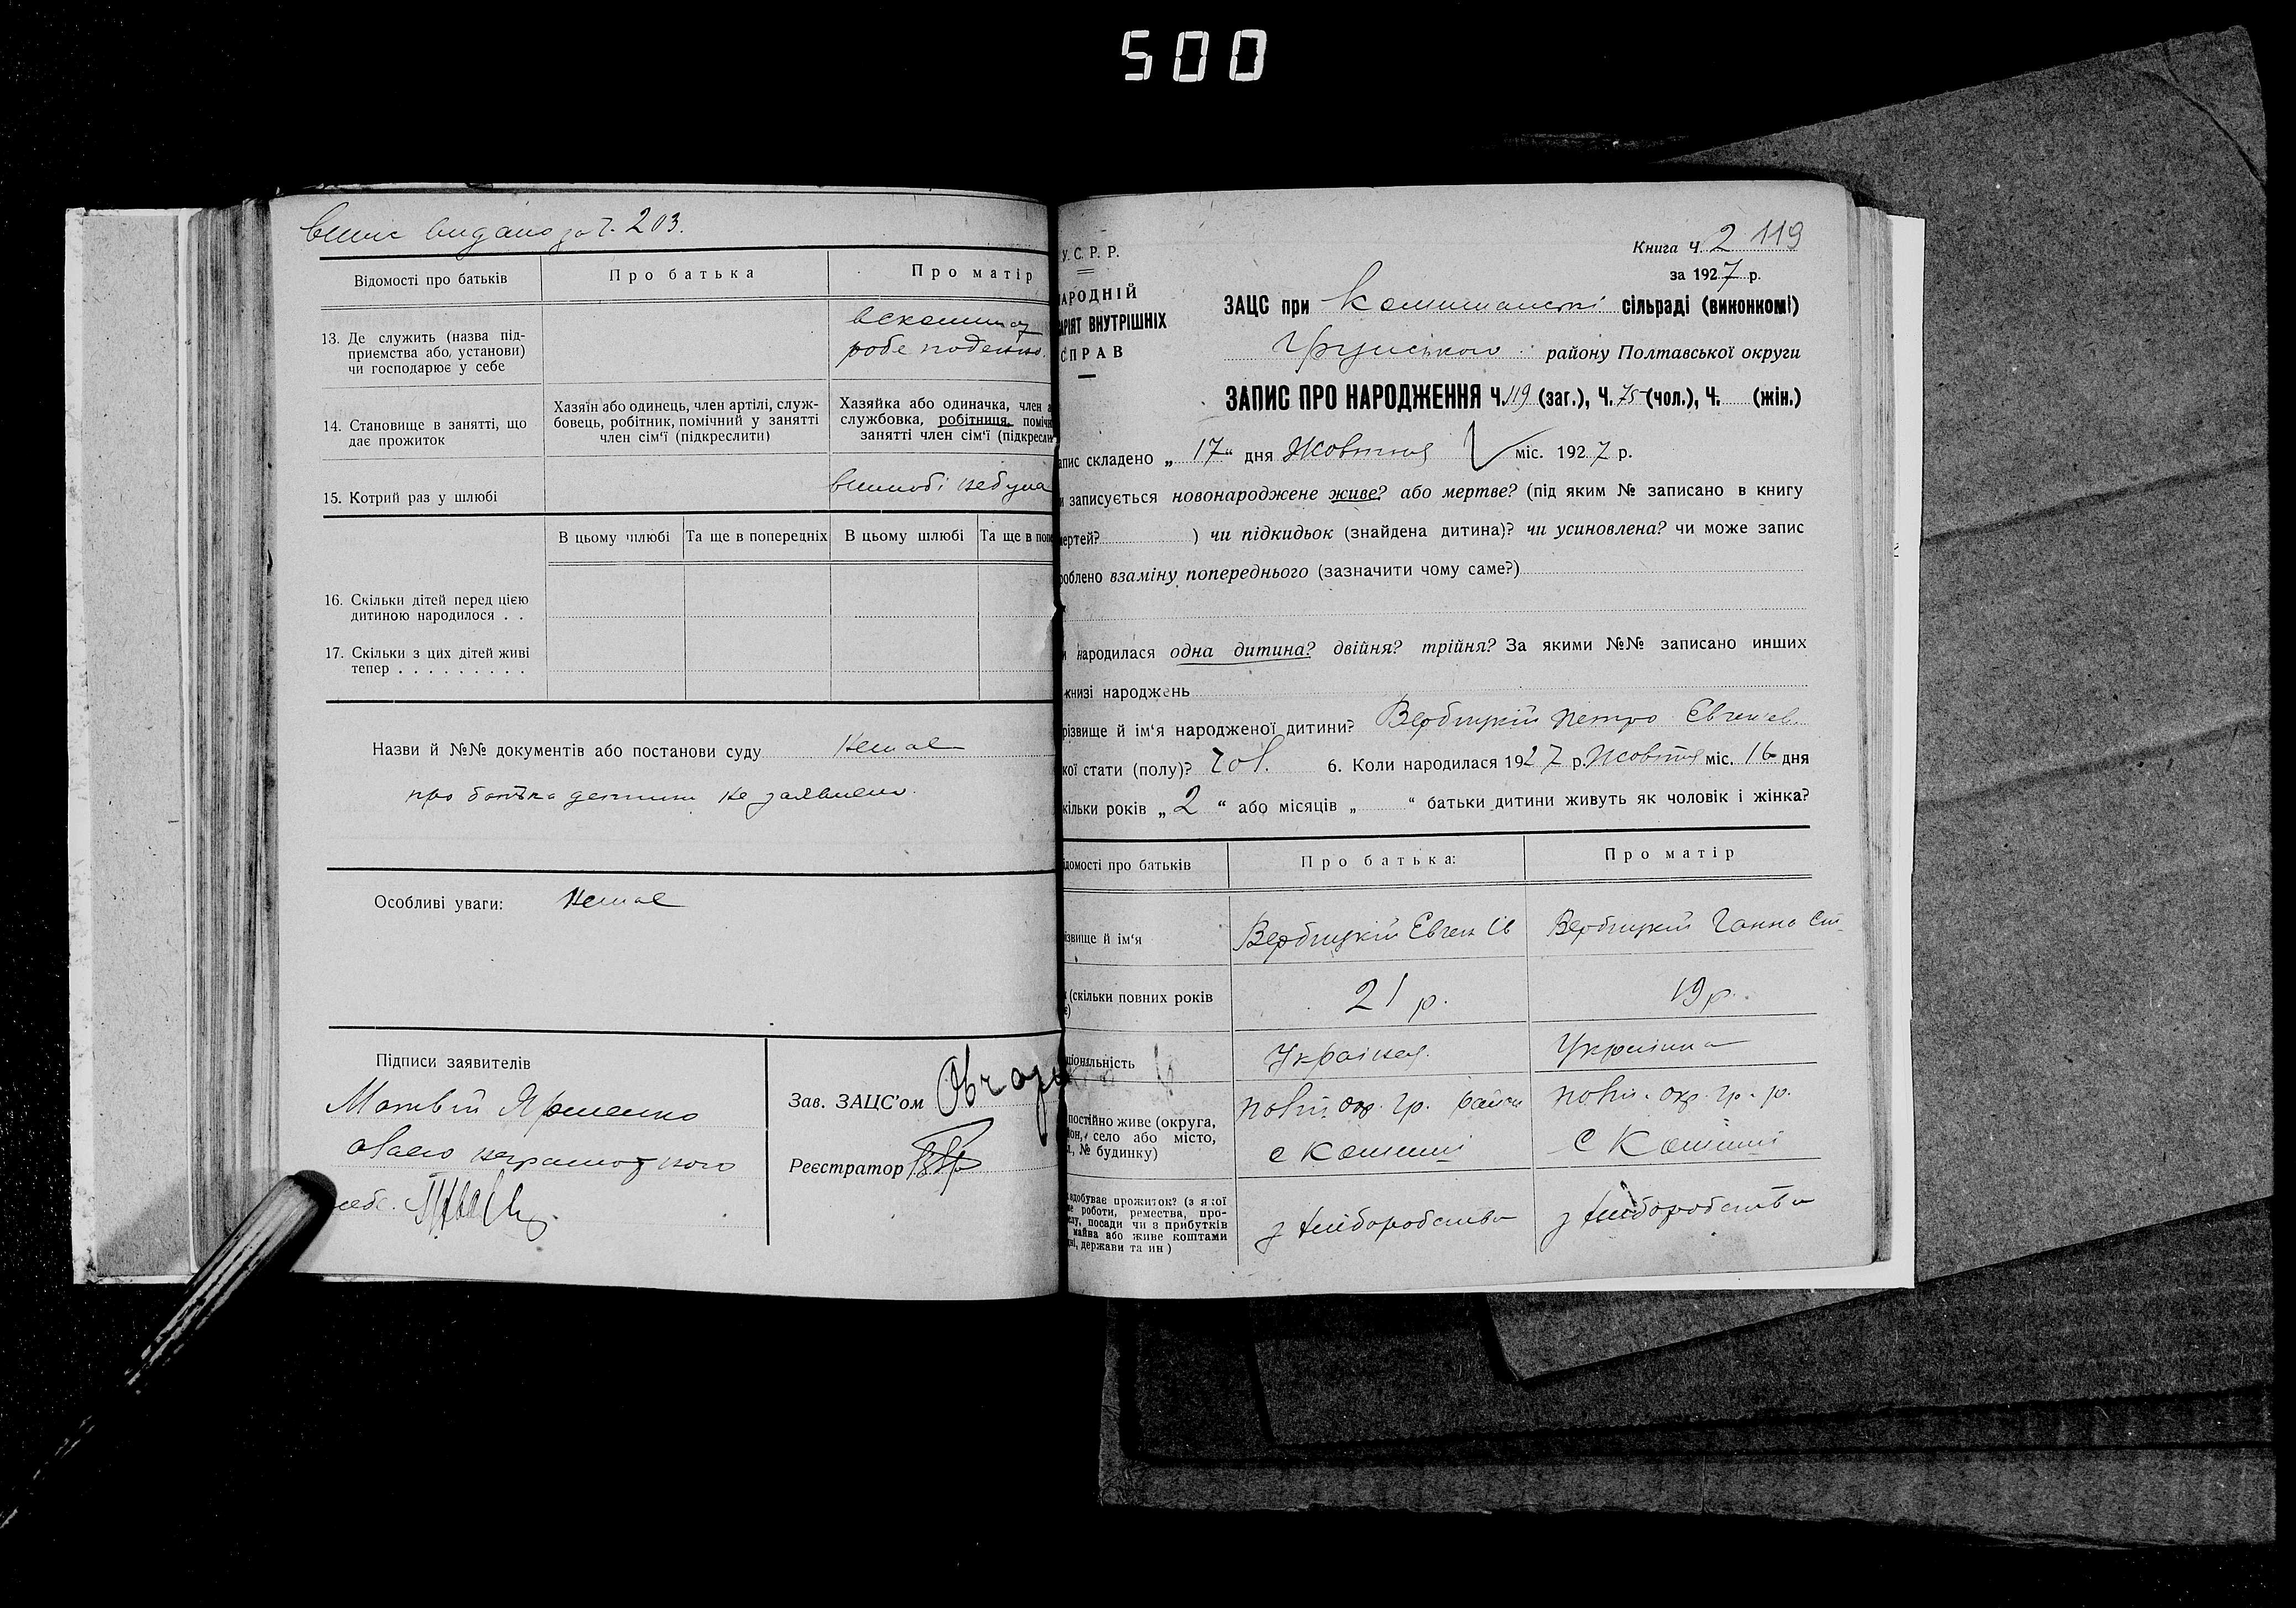 500
випис видано за ч. 203.
Відомості про батьків
Про батька
Про матір
13. Де служить (назва під-
приємства або, установи)
чи господарює у себе
робе поденно.
14. Становище в занятті, що
дає прожиток
Хазяїн або одинець, член артілі, служ-
бовець, робітник, помічний у занятті
член сім'ї (підкреслити)
Хазяйка або одиначка, член а
службовка, робітниця, помічн
занятті член сім'ї (підкресли
15. Котрий раз у шлюбі
вшлюбі небула
В цьому шлюбі
Та ще в попередніх
В цьому шлюбі
Та ще в попе
16. Скільки дітей перед цією
дитиною народилося . .
17. Скільки з цих дітей живі
тепер . . . . . . . . .
Назви й №№ документів або постанови суду немає
про батька детини не заявлено.
Особливі уваги: немає
Підписи заявителів
Матвій Ярошенко
а заєго неграмотного
Зав. ЗАЦС'ом
Реєстратор
У. С. Р. Р.
АРОДНІЙ
АРІЯТ ВНУТРІШНІХ
СПРАВ
Книга Ч. 2 119
за 1927 р.
ЗАЦС при Комишанські сільраді (виконкомі)
Грунського району Полтавської округи
ЗАПИС ПРО НАРОДЖЕННЯ Ч. 119 (заг.), Ч. 75 (чол.), Ч. (жін.)
апис складено „ 17 “ дня Жовтня міс. 1927 р.
и записується новонароджене живе? або мертве? (під яким № записано в книгу
мертей? ) чи підкидьок (знайдена дитина)? чи усиновлена? чи може запис
роблено взаміну попереднього (зазначити чому саме?)
и народилася одна дитина? двійня? трійня? За якими №№ записано инших
книзі народжень
різвище й ім'я народженої дитини? Вербицкій Петро Євгенов.
кої стати (полу)? чол. 6. Коли народилася 1927 р. Жовтня міс. 16 дня
кільки років „ 2 “ або місяців „ “ батьки дитини живуть як чоловік і жінка?
ідомості про батьків
Про батька:
Про матір
ізвище й ім'я
Вербицкій Євген Ів
Вербицкій Ганна Єв
(скільки повних років
є)
21 р.
19 р.
ціональність
Українец.
Українка
постійно живе (округа,
он, село або місто,
., № будинку)
Полт. окр. Гр. район
с Комиші
Полт. окр. Гр. р.
с Комиші
здобуває прожиток? (з якої
е роботи, ремества, про-
лу, посади чи з прибутків
майва або живе коштами
ні, держави та ин)
з хліборобства
з хліборобства